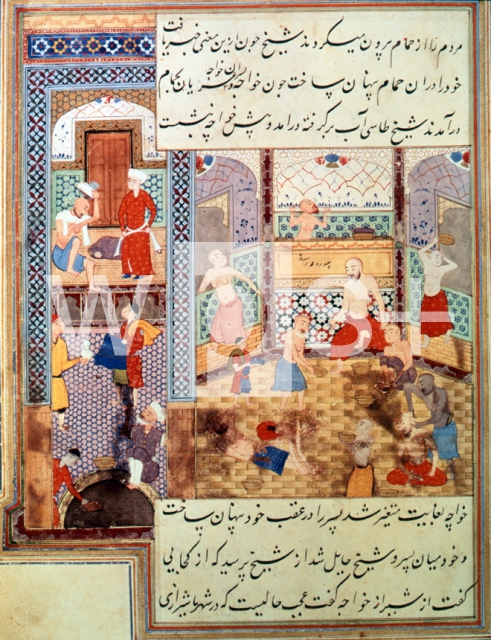 مردم را از حمام بیرون میکردند شیخ چون این معنی خبر یافت
خود را در ان حمام پنهان ساخت چون خواجه و خواجه عریان بحمام
در آمدند شیخ طاسی آب بر گرفته در آمد و پیش خواجه نشست
خواجه بغایت متغیر شد پسر را در عقب خود پنهان ساخت
و خود میان پسر و شیخ حایل شد از شیخ پرسید که از کجایی
گفت از شیراز خواجه گفت عجب حالیست که در شهر ما شیرازی